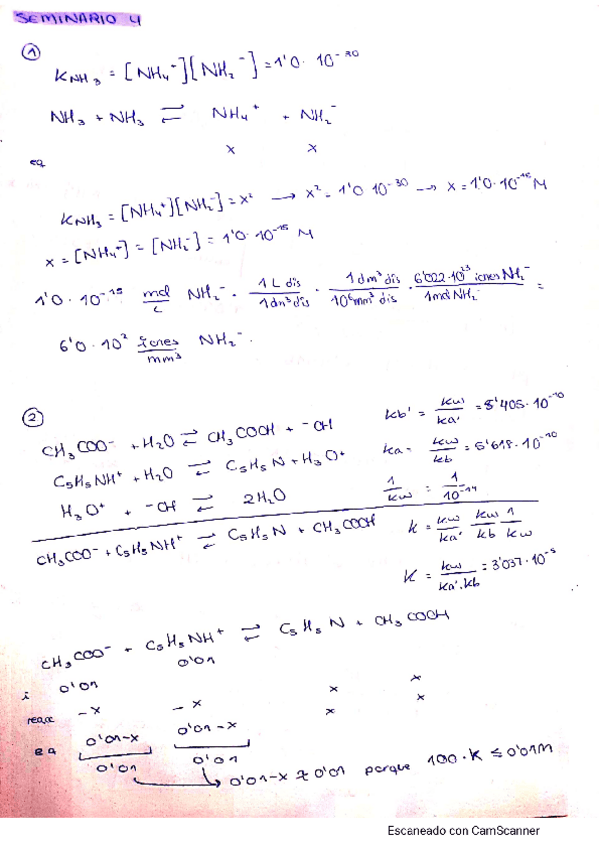 SEMINARIO 4
①
K NH₃ = [NH₄⁺][NH₂⁻] = 1'0 · 10⁻³⁰
NH₃ + NH₃ ⇌ NH₄⁺ + NH₂⁻
eq x x
K NH₃ = [NH₄⁺][NH₂⁻] = x² → x² = 1'0 10⁻³⁰ → x = 1'0 · 10⁻¹⁵ M
x = [NH₄⁺] = [NH₂⁻] = 1'0 · 10⁻¹⁵ M
1'0 · 10⁻¹⁵ mol/L NH₂⁻ · 1 L dis/1 dm³ dis · 1 dm³ dis/10⁶ mm³ dis · 6'022 · 10²³ iones NH₂⁻/1 mol NH₂⁻ =
6'0 · 10² iones/mm³ NH₂⁻.
②
CH₃COO⁻ + H₂O ⇌ CH₃COOH + ⁻OH kb' = kw/ka' = 5'405 · 10⁻¹⁰
C₅H₅NH⁺ + H₂O ⇌ C₅H₅N + H₃O⁺ ka = kw/kb = 5'618 · 10⁻¹⁰
H₃O⁺ + ⁻OH ⇌ 2H₂O 1/kw = 1/10⁻¹⁴
CH₃COO⁻ + C₅H₅NH⁺ ⇌ C₅H₅N + CH₃COOH k = kw/ka' kw/kb 1/kw
K = kw/ka'.kb = 3'037 · 10⁻⁵
CH₃COO⁻ + C₅H₅NH⁺ ⇌ C₅H₅N + CH₃COOH
i 0'01 0'01
reacc -x -x x x
x x
eq 0'01-x 0'01-x
0'01 0'01
0'01-x ≈ 0'01 porque 100 · K ≤ 0'01M
Escaneado con CamScanner